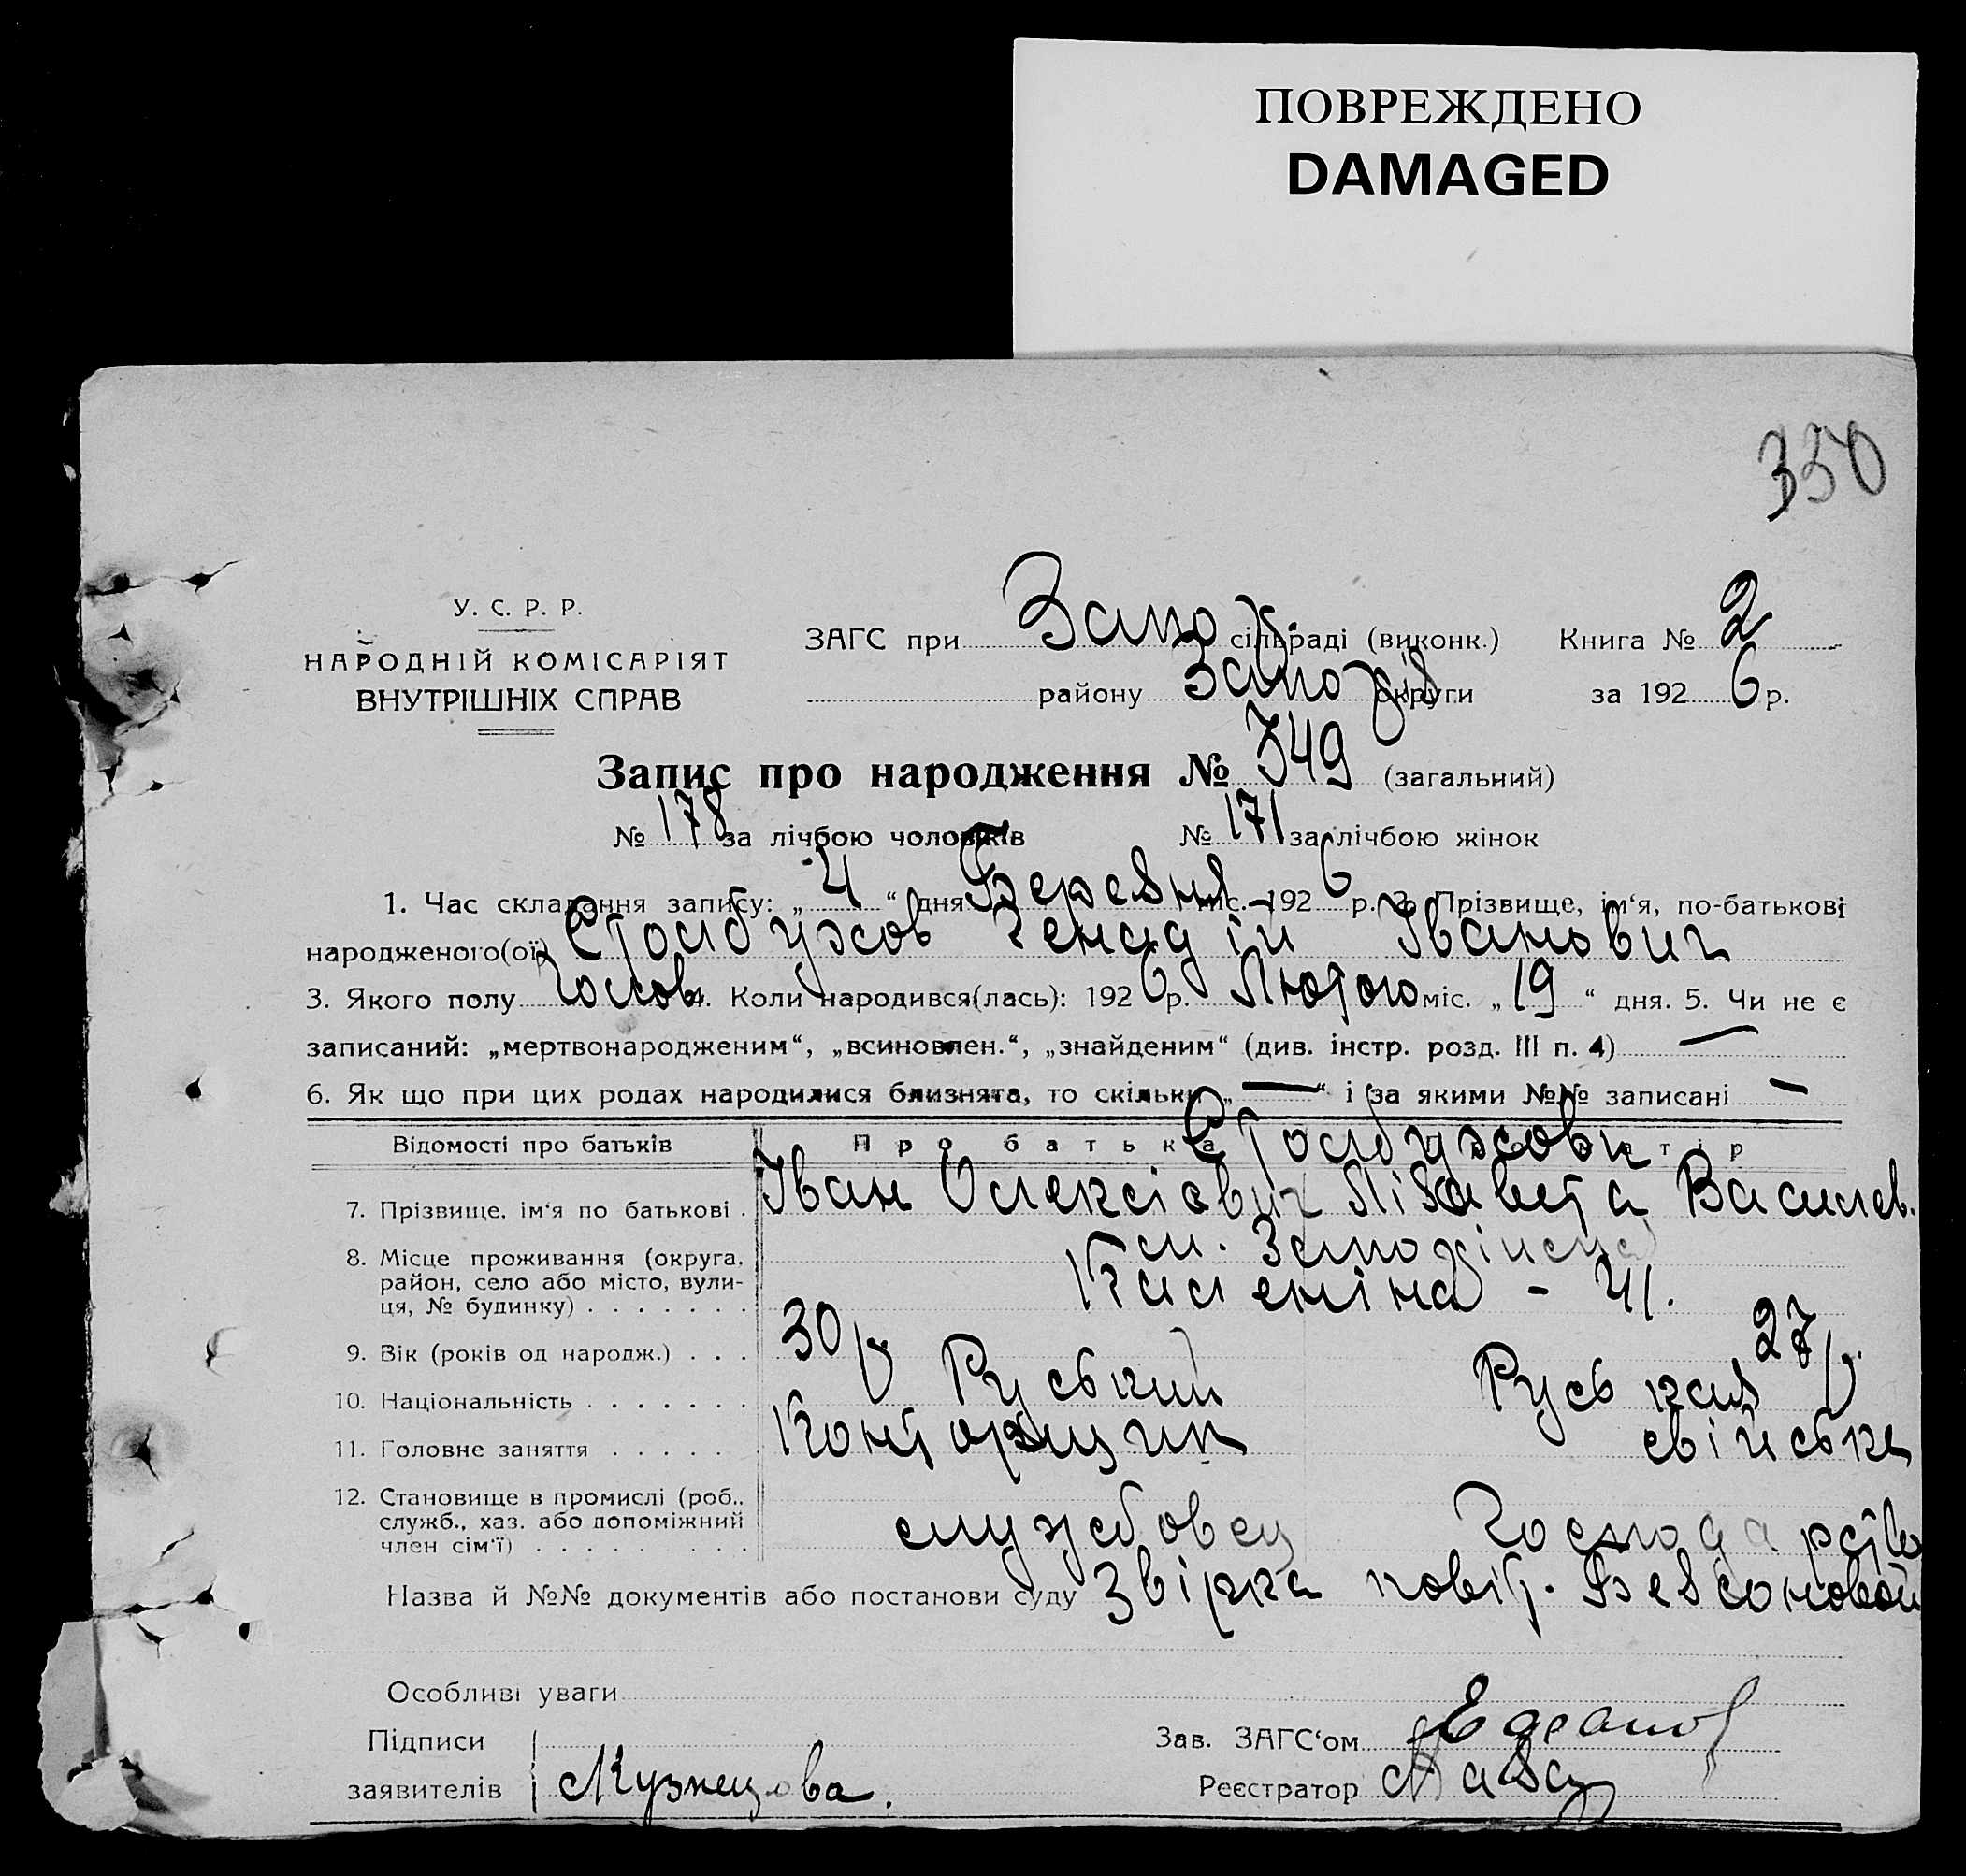 ПОВРЕЖДЕНО
DAMAGED
350
У. С. Р. Р.
НАРОДНІЙ КОМІСАРІЯТ
ВНУТРІШНІХ СПРАВ
ЗАГС при Запоз. сільраді (виконк.) Книга № 2
району Запоріз округи за 1926 р.
Запис про народження № 349 (загальний)
№ 178 за лічбою чоловіків № 171 за лічбою жінок
1. Час складання запису: „4“ дня Березня міс. 1926 р. 2. Прізвище, ім‘я, по-батькові
народженого(ої) Столбухов Генадій Іванович
3. Якого полу Чолов. 4. Коли народився(лась): 1926 р. Лютого міс. „19“ дня. 5. Чи не є
записаний: „мертвонародженим“, „всиновлен.“, „знайденим“ (див. інстр. розд. III п. 4) —
6. Як що при цих родах народилися близнята, то скільки „—“ і за якими №№ записані —
Відомості про батьків Про батька Столбухови
7. Прізвище, ім‘я по батькові . Іван Олексієвич Лізавета Василев.
8. Місце проживання (округа, район, село або місто, вули-
ця, № будинку) . . . . . . . м. Запоріжжа
Каменіна - 41.
9. Вік (років од народж.) . . . 30 р 27 р.
10. Національність . . . . . . . Руський Руськая
11. Головне заняття . . . . . . Конторщик свійське
12. Становище в промислі (роб.,
служб., хаз. або допоміжний
член сім‘ї) . . . . . . . . . службовец Господарство
Назва й №№ документів або постанови суду Звірка повіт. Безсоновой
Особливі уваги
Підписи Зав. ЗАГС‘ом
заявителів Кузнецова. Реєстратор